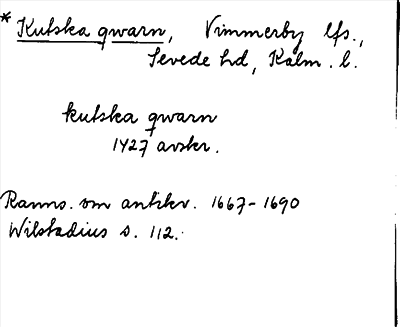 * Kutska qwarn, Vimmerby lfs.,
Sevede hd, Kalm. l.
kutska qwarn
1427 avskr.
Ranns. om antikv. 1667-1690
Wilstadius s. 112.